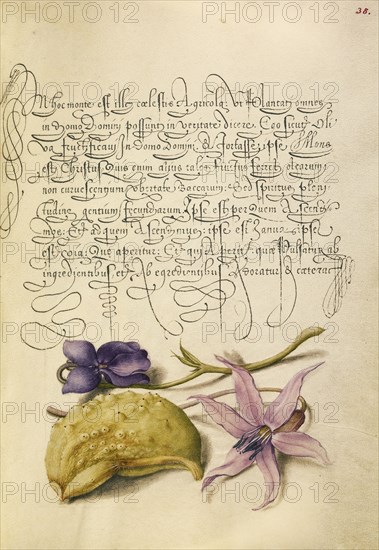 38.
In hoc monte est ille cœlestis Agricola. Vt Plantati omnes
in domo Domini possint in veritate dicere. Ego sicut Oli
va fructificavi In domo Domini. & fortasse ipse Mons
est Christus. Quis enim alius tales fructus ferret olearum:
non curvescentium vbertate baccarum: Sed spiritus pleni
tudine gentium fecundarum Ipse est per Quem Ascendi
mus: Et ad quem Ascendimus: ipse est Ianua: ipse
est via: Quæ aperitur: Et qui Aperit: quæ Pulsatur ab
ingredientibus et Ab egredientibus Adoratur & cætera